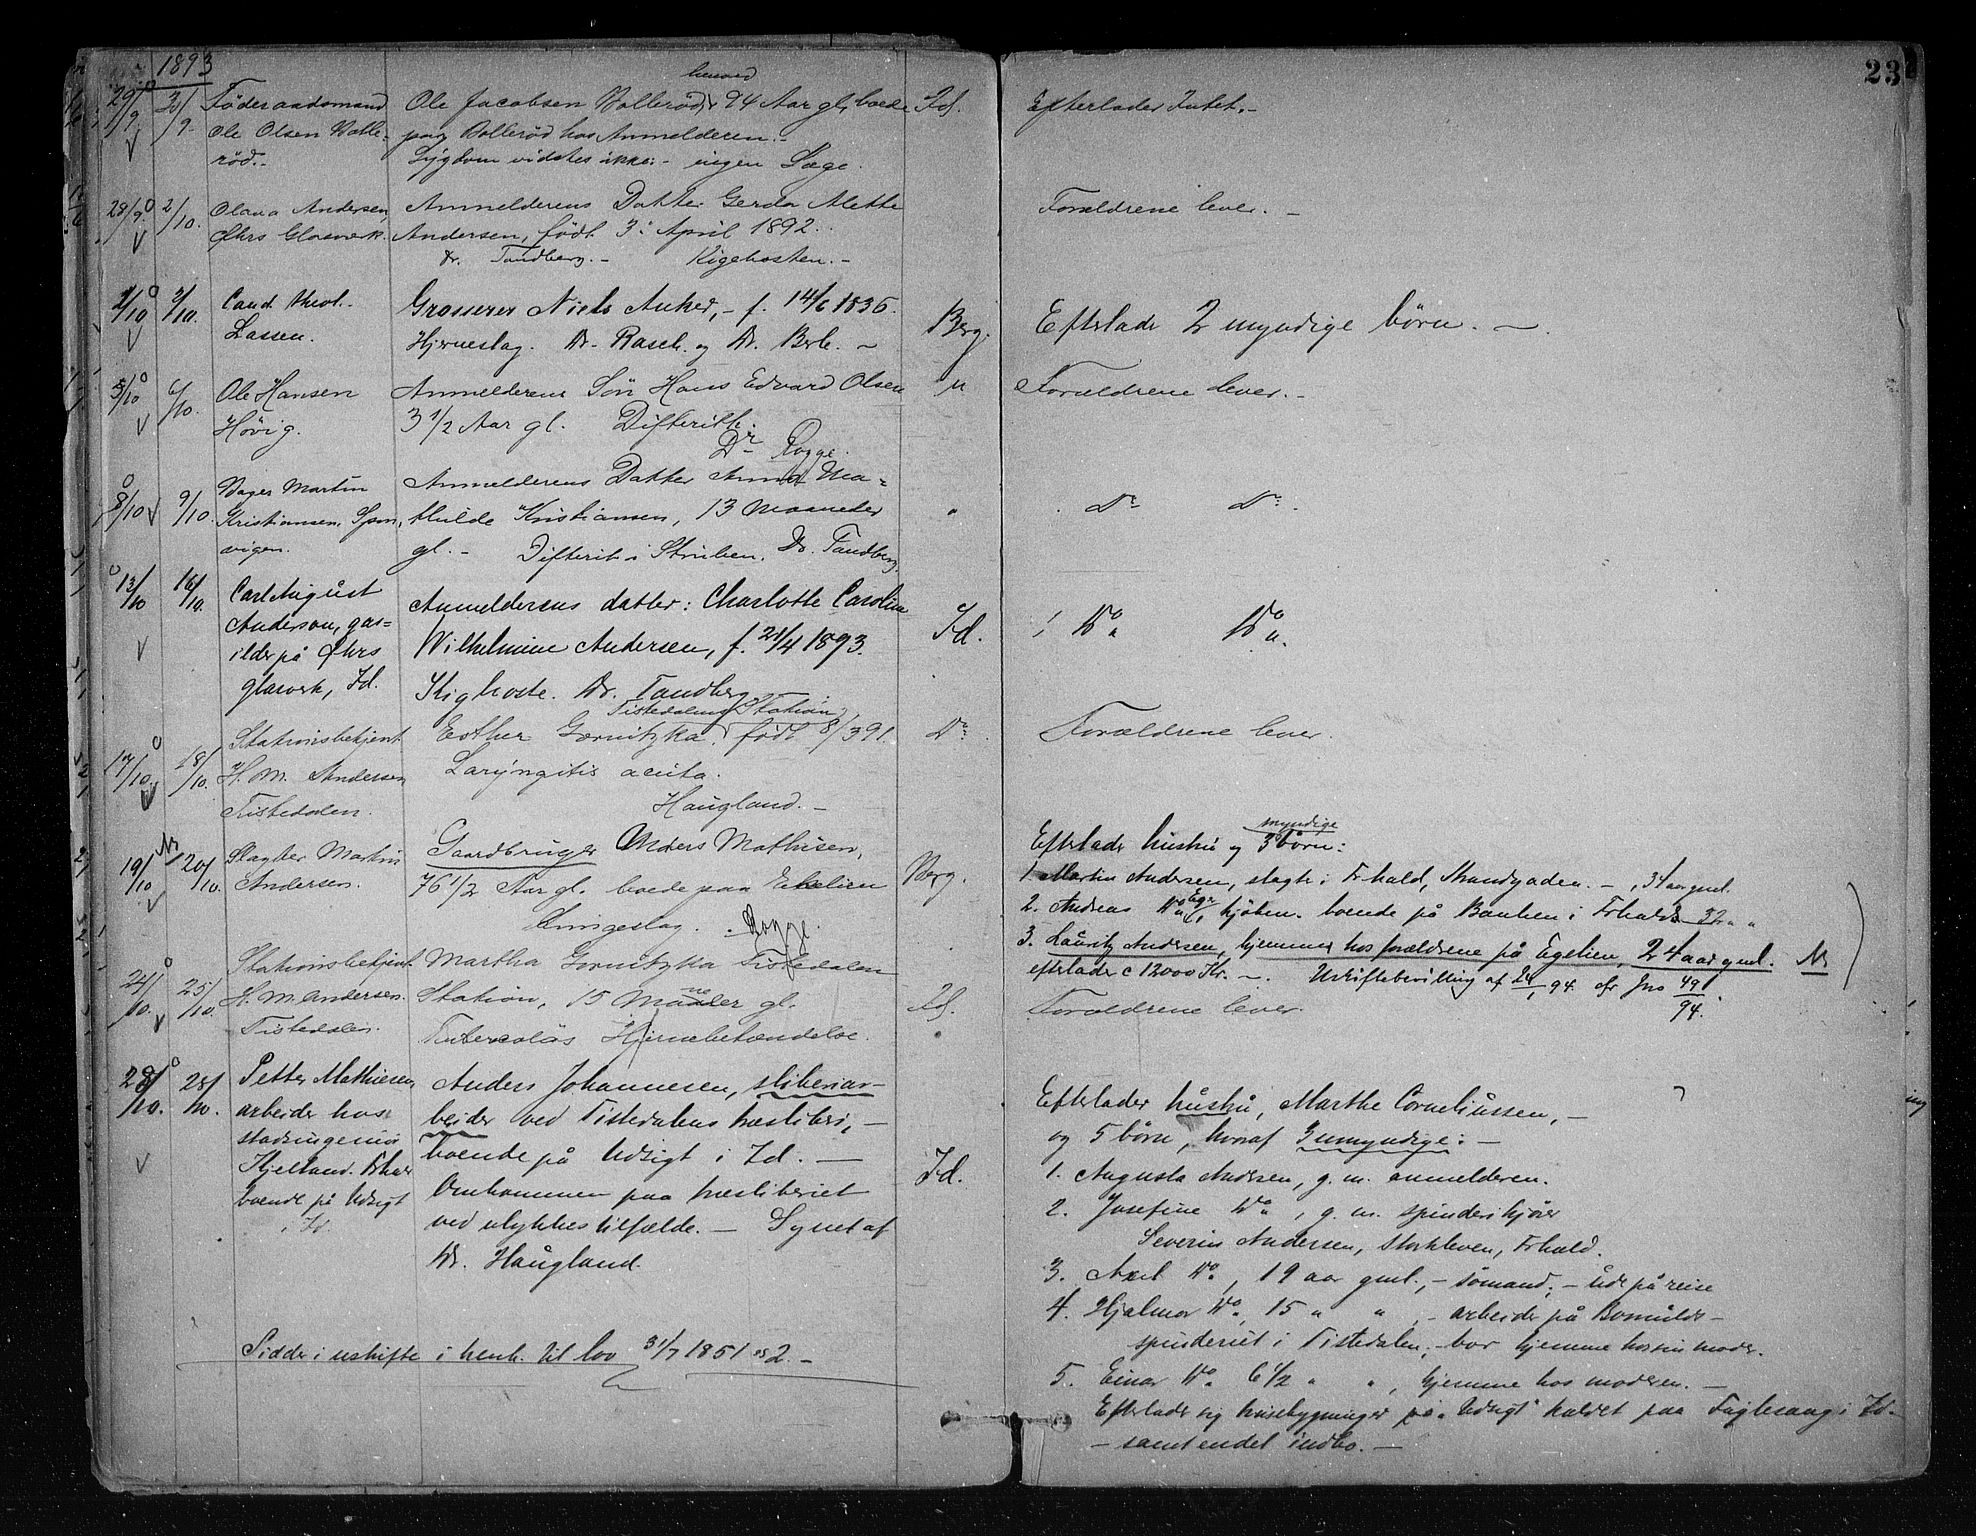 1893
23
29/9 30/9. Föderaadsmand Ole Jacobsen Bolleröd, 94 Aar gl., boede Id. Efterlader Intet.-
Ole Olsen Bolle- paa Bolleröd hos Anmelderen.-
röd.- Sygdom vidstes ikke.- ingen Læge.
28/9. 2/10. Olava Andersen, Anmelderens Datter Gerda Mette Forældrene lever.-
Ørhs Glasværk. Andersen, födt 3: April 1892.
Dr. Tandberg.- Kigehosten.-
1/10 2/10. Cand. theol. Grosserer Niels Anker,- f. 14/6 1836. Berg. Efterlade 2 myndige börn.-
Lassen. Hjerneslag. Dr. Rasch. og Dr. Berle.-
5/10 6/10. Ole Hansen Anmelderens Sön Hans Edvard Olsen " Forældrene lever.-
Hövig. 3 1/2 Aar gl. Difterith.
Dr Rogge.
8/10 9/10. Martin Anmelderens Datter Anna Ma- " Do Do
Kristiansen, Spon- thilde Kristiansen, 13 Maaneder
vigen. gl.- Difterit i Struben. Dr. Tandberg.
13/10 16/10. Carl August Anmelderens datter: Charlotte Carolin Id. Do Do
Anderson, gas- Wilhelmine Andersen, f. 21/4 1893.
ilder på Ørhs
glasverk, Id. Kighoste. Dr. Tandberg
Tistedalens Station
17/10. 18/10. Stationsbetjent Esther Gornitzka. födt 8/3 91. Do. Forældrene lever.
H. M. Andersen Laryngitis acuta.
Tistedalen. Haugland.-
19/10 20/10. Slagter Martin Gaardbruger Anders Mathisen, Berg. Efterlade hustru og 3 myndige börn:
Andersen. 76 1/2 Aar gl. boede paa Egelien 1. Martin Andersen, slagter i Frhald, Strandgaden.-, 34 aar gml.
Slag. Rogge. 2. Andreas Do, kjöbm. boende på Banken i Frhald 32 " "
3. Lauritz Andersen, hjemme hos forældrene på Egelien, 24 aar gml.
efterlader c 12000 Kr.- Uskiftebevilling af 24/1 94. Jno 49/94.
24/10. 25/10. Stationsbetjent Martha Gornitzka Tistedalen Id. Forældrene lever.
H. M. Andersen. Station, 15 Maaneder gl.
Tistedalen. Tuberculös Hjernebetændelse.
28/10. 28/10. Petter Mathiesen, Anders Johannesen, sliberiar- Efterlader hustru, Marthe Corneliussen,-
arbeider hos beider ved Tistedalens træsliberi,- og 5 börn, hvoraf 3 umyndige:-
stadsingeniör boende på Udsigt i Id.- Id. 1. Augusta Andersen, g. m. anmelderen.
Kjelland. Frhald Omkommen paa træsliberiet 2. Josefine Do, g. m. spinderikjörer
boende på Udsigt ved ulykkestilfælde.- Synet af Severin Andersen, Storkleven, Frhald.
i Id. Dr. Haugland. 3. Axel Do, 19 aar gml.,- sömand;- ude på reise
4. Hjalmar Do, 15 " ",- arbeider på Bomulds-
Sidder i uskifte i henh. til lov 31/7 1851 § 2.- spinderiet i Tistedalen,- bor hjemme hos sin moder.
5. Einar Do 6 1/2 " ", hjemme hos moderen.-
Efterlader sig husebygninger på "Udsigt" kaldet paa Fuglesang i Id.-
- samt endel indbo.-